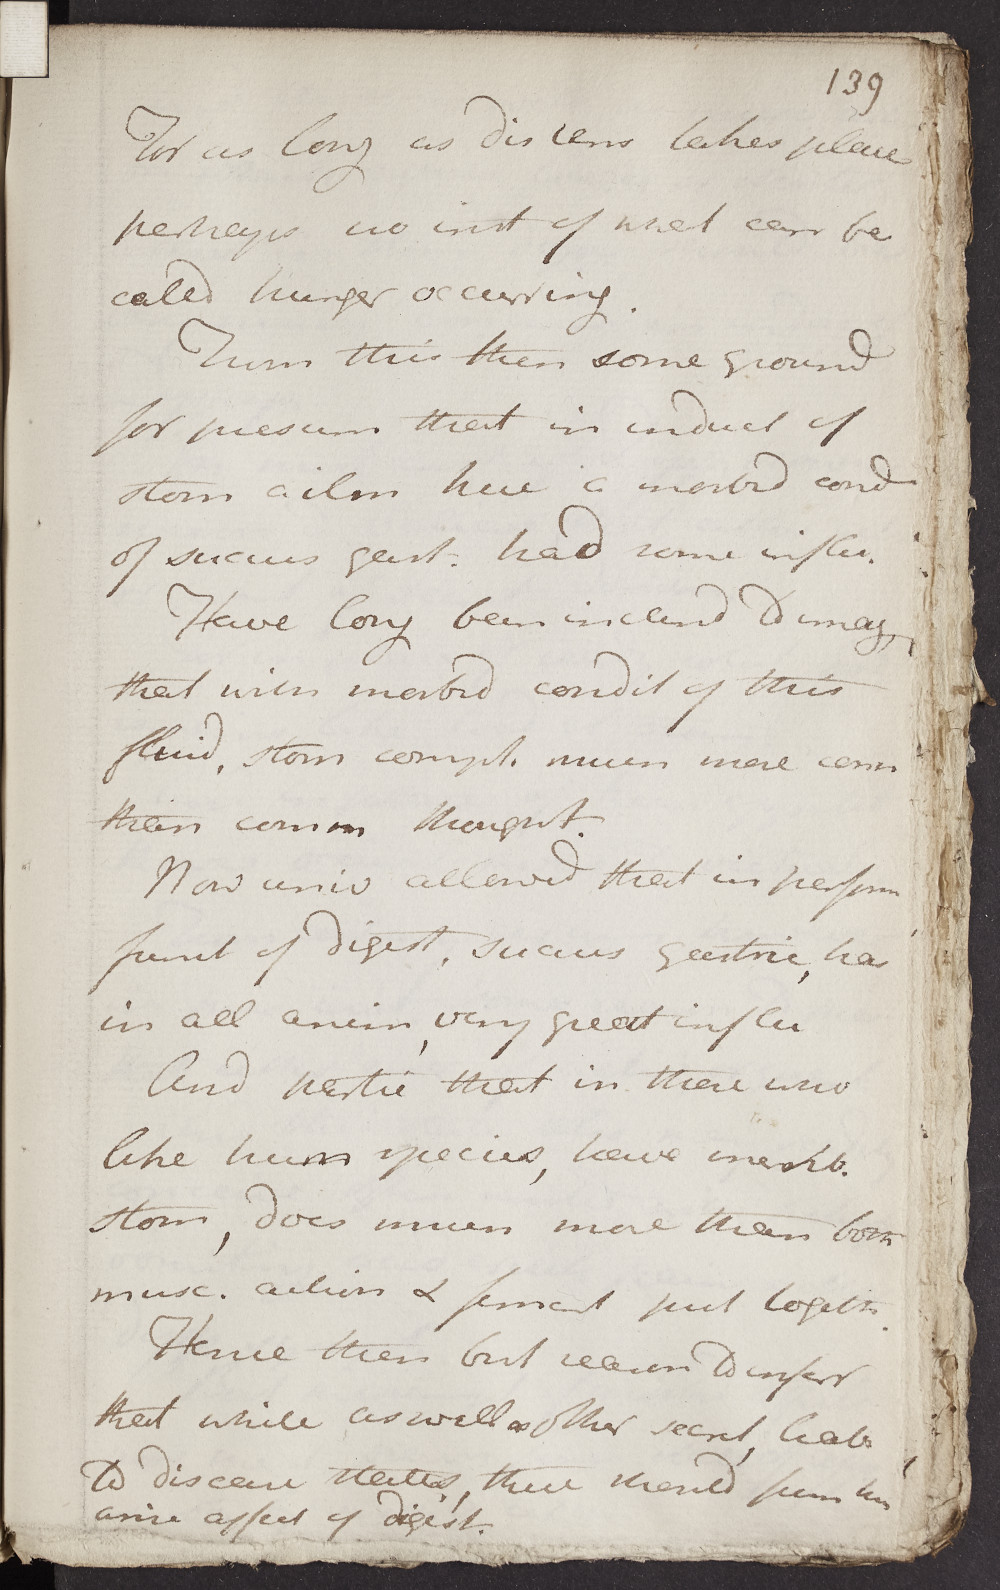 139
For as long as disten takes place
perhaps no inst of what can be
called hunger occurring.
From this then some ground
for presum that in induct of
stom ailm here a morbd cond
of succus gast. had some influ.
Have long been inclend to imag
that with morbd condit of this
fluid, stom compl. much more conn
than comm thought.
Now univ allowed that in perform
funct of digest, succus gastric, has
in all anim, very great influ
And partic that in those who
like hum species, have membr.
stom, does much more than both
musc. action & ferment put togeth.
Hence then but reason to inferr
that while as well as other secret, liab
to disease states, there should from this
arise affect of digest.